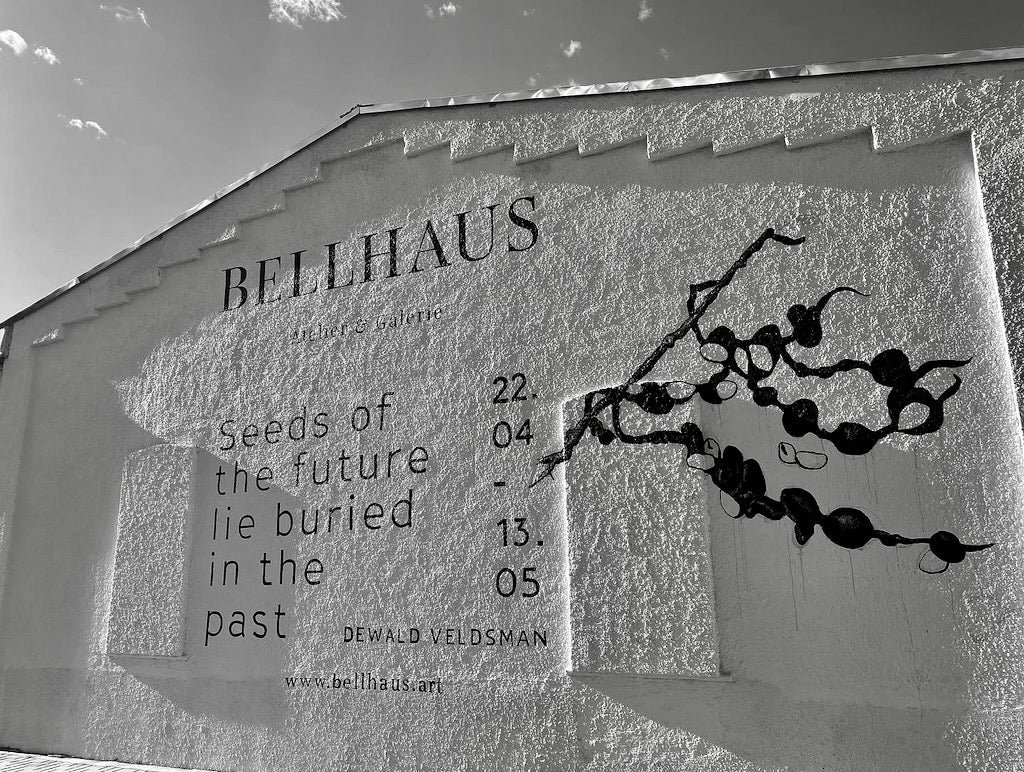 BELLHAUS
Atelier & Galerie
Seeds of
the future
lie buried
in the
past
22.
04
-
13.
05
DEWALD VELDSMAN
www.bellhaus.art